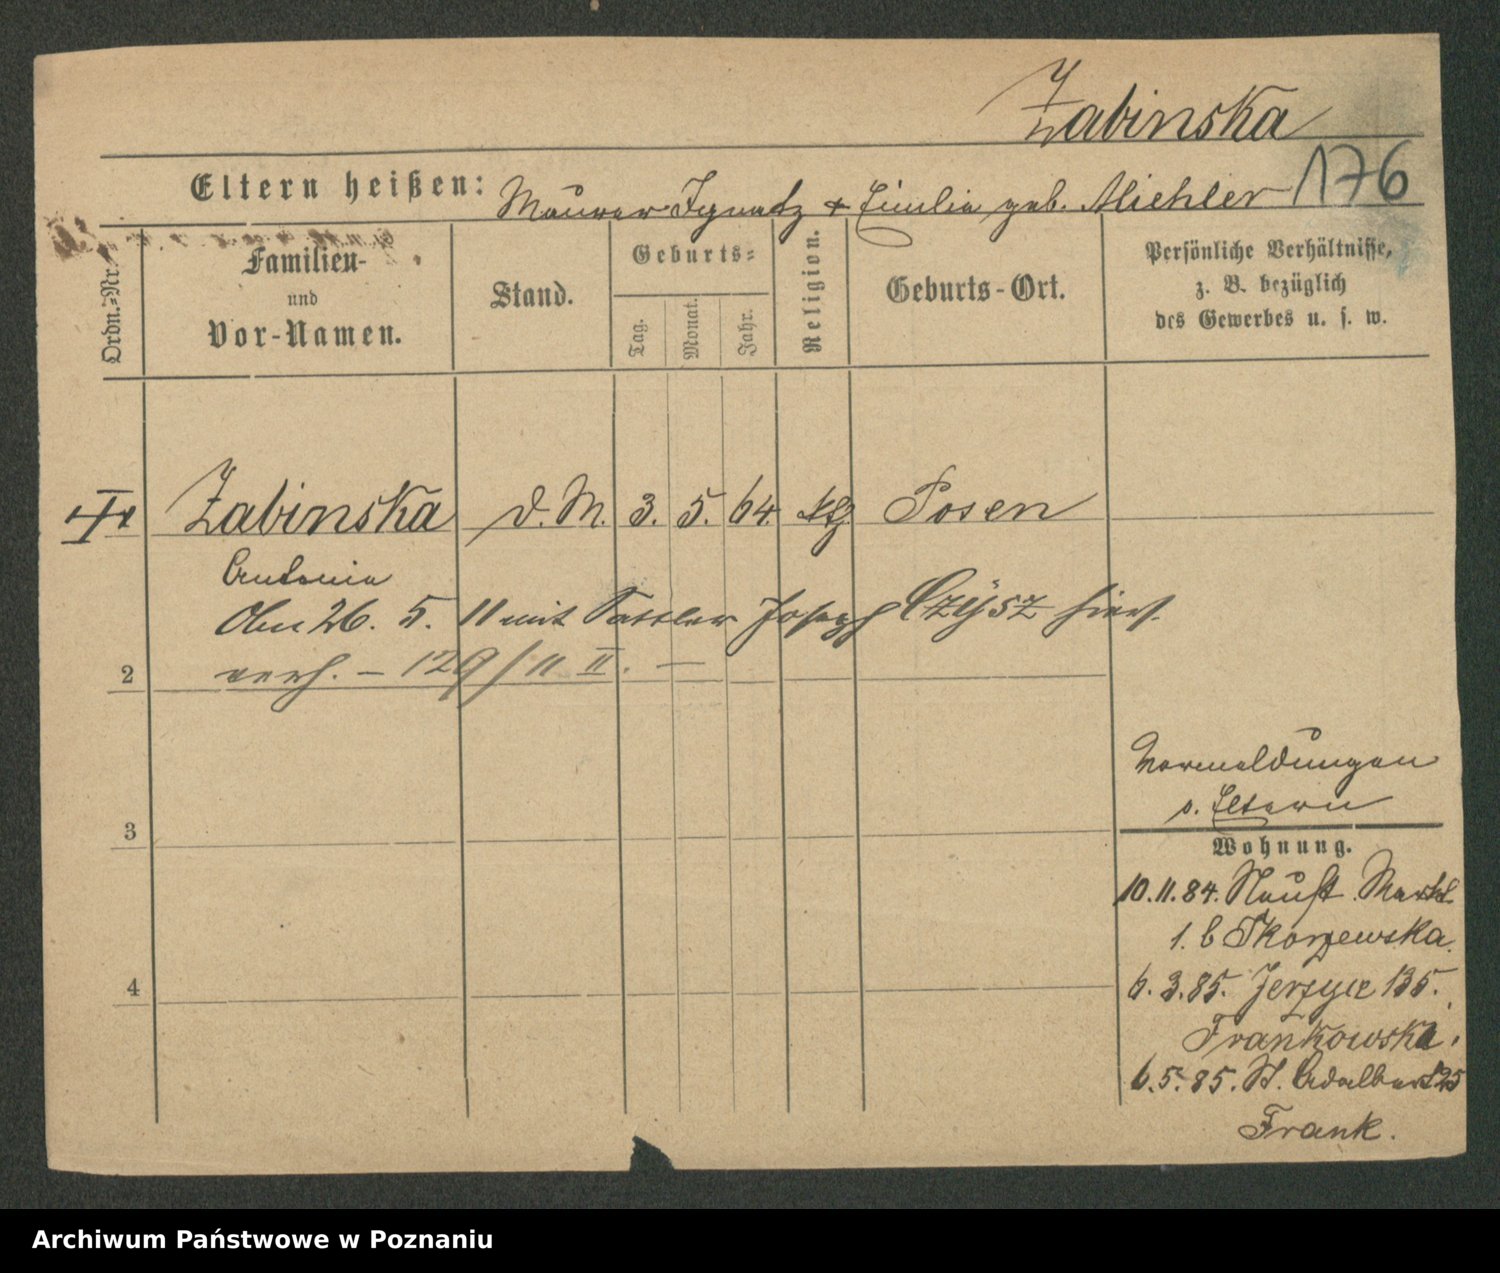 Zabinska
176
Eltern heißen: Maurer Ignatz & Emilie geb. Miehler
Ordn.-Nr.
Familien-
und
Vor-Namen.
Stand.
Geburts-
Tag.
Monat.
Jahr.
Religion.
Geburts-Ort.
Persönliche Verhältnisse,
z. B. bezüglich
des Gewerbes u. s. w.
Zabinska D. M. 3. 5. 64. ktl Posen
Antonie
Am 26. 5. 11 mit Sattler Joseph Czysz hier
verh. – 129/11 II. –
2
3
4
Vormeldungen
s. Eltern
Wohnung.
10.11.84. Neust. Markt
1. b Skorzewska.
6.3.85. Jerzyce 135.
Frankowski.
6.5.85. St. Adalbert 25
Frank.
Archiwum Państwowe w Poznaniu